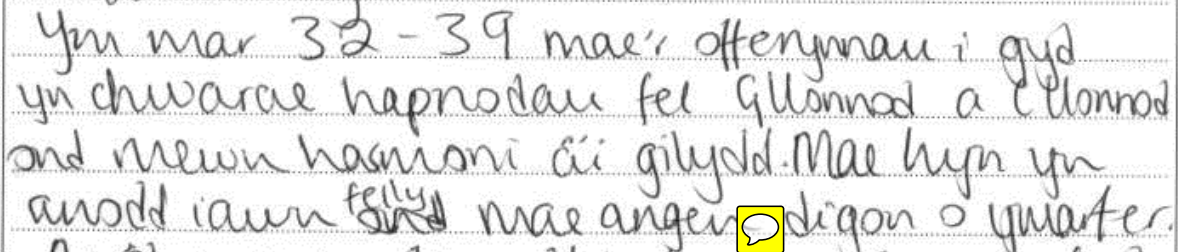 Ym mar 32-39 mae'r offerynnau i gyd
yn chwarae hapnodau fel Gllonnod a Cllonnod
ond mewn harmoni âi gilydd. Mae hyn yn
anodd iawn felly mae angen digon o ymarfer.